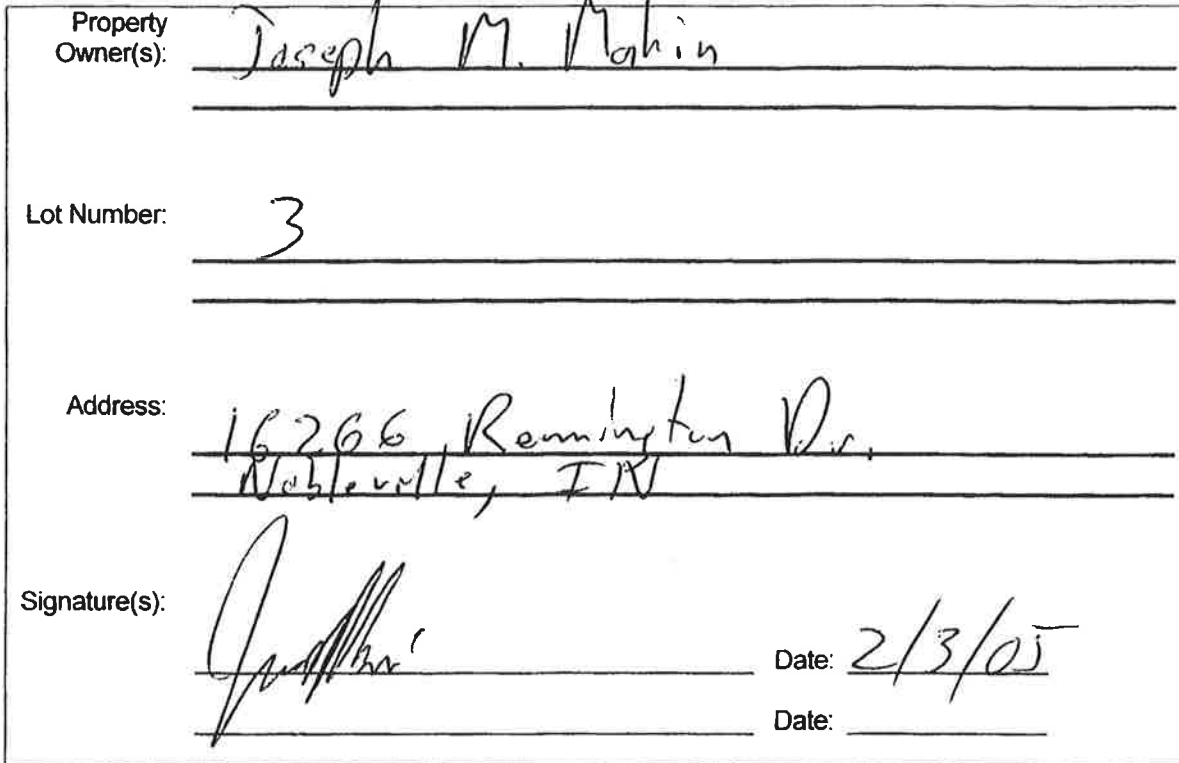 Property
Owner(s): Joseph M. Mahin
Lot Number: 3
Address: 16266 Remington Dr.
Noblesville, IN
Signature(s):
Date: 2/3/05
Date: